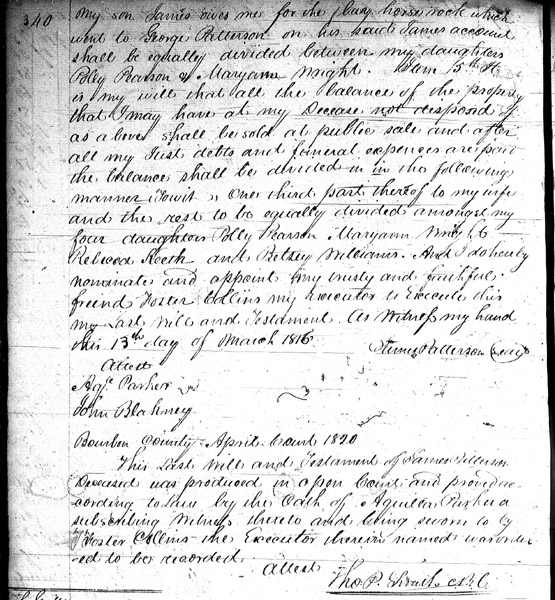 340
my son James owes me for the bay horse nock which
went to George Patterson on his said James account
shall be equally divided between my daughters
Polly Pearson & Maryann Wright. Item 5th It
is my will that all the balance of the property
that I may have at my Decease not disposed of
as above shall be sold at public sale and after
all my Just debts and funeral expences are paid
the balance shall be divided in in the following
manner Towit, One third part thereof to my wife
and the rest to be equally divided amongst my
four daughters Polly Pearson Maryann Wright
Rebecca Keeth and Betsey Williams. And I do hereby
nominate and appoint my trusty and faithful
friend Foster Collins my Executor to Execute this
my Last Will and Testament. As Witness my hand
this 13th day of March 1816
James Patterson (seal)
Attest
Aqe Parker
John Blakney
Bourbon County April Court 1820
This Last Will and Testament of James Patterson
Deceased was produced in open Court and proved ac-
cording to Law by the Oath of Aquilla Parker a
subscribing Witness thereto and being sworn to by
Foster Collins the Executor therein named was order
ed to be recorded
Attest
Tho. P. Smith c.b.c